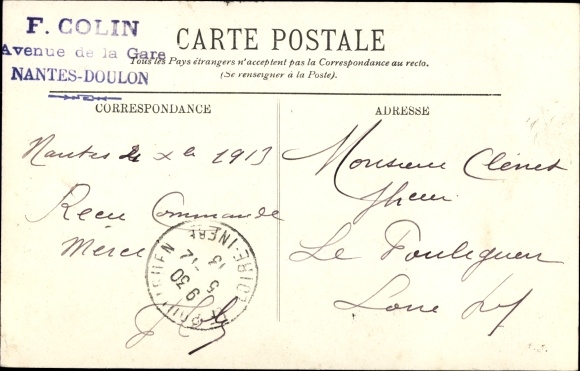 F. COLIN
Avenue de la Gare
NANTES-DOULON
CARTE POSTALE
Tous les Pays étrangers n'acceptent pas la Correspondance au recto.
(Se renseigner à la Poste).
CORRESPONDANCE
Nantes Xbre 1913
Reçu Commande
Merci
ADRESSE
Monsieur
Le Pouliguen
Loire Inf
LE POULIGUEN
LOIRE-INFRE
9 30
5 -12
13